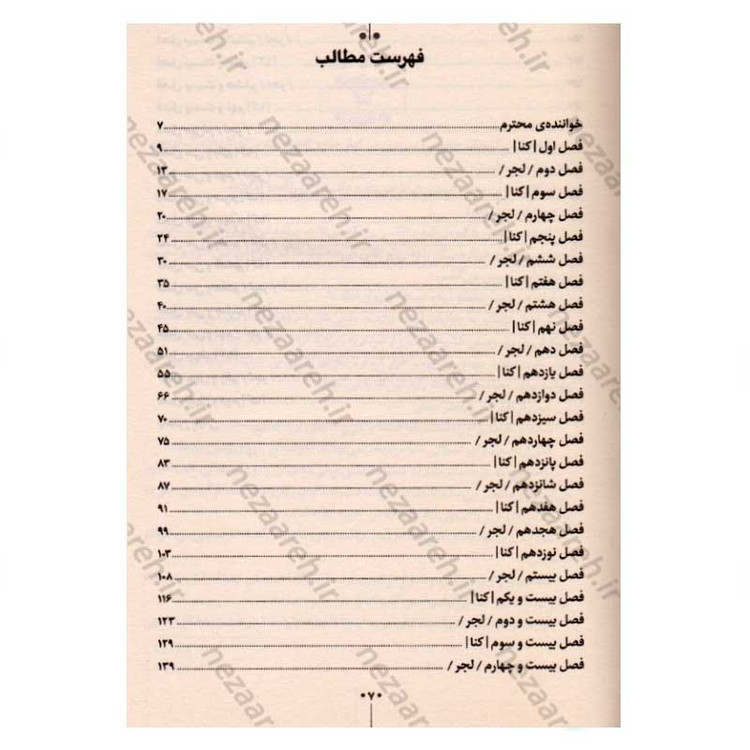 فهرست مطالب
خواننده‌ی محترم ........ ۷
فصل اول |کنا| ........ ۹
فصل دوم / لجر / ........ ۱۳
فصل سوم |کنا| ........ ۱۷
فصل چهارم / لجر / ........ ۲۰
فصل پنجم |کنا| ........ ۲۴
فصل ششم / لجر / ........ ۳۰
فصل هفتم |کنا| ........ ۳۵
فصل هشتم / لجر / ........ ۴۰
فصل نهم |کنا| ........ ۴۵
فصل دهم / لجر / ........ ۵۱
فصل یازدهم |کنا| ........ ۵۵
فصل دوازدهم / لجر / ........ ۶۶
فصل سیزدهم |کنا| ........ ۷۰
فصل چهاردهم / لجر / ........ ۷۵
فصل پانزدهم |کنا| ........ ۸۳
فصل شانزدهم / لجر / ........ ۸۷
فصل هفدهم |کنا| ........ ۹۱
فصل هجدهم / لجر / ........ ۹۹
فصل نوزدهم |کنا| ........ ۱۰۳
فصل بیستم / لجر / ........ ۱۰۸
فصل بیست و یکم |کنا| ........ ۱۱۶
فصل بیست و دوم / لجر / ........ ۱۲۳
فصل بیست و سوم |کنا| ........ ۱۲۹
فصل بیست و چهارم / لجر / ........ ۱۳۹
•۷•
nezaareh.ir